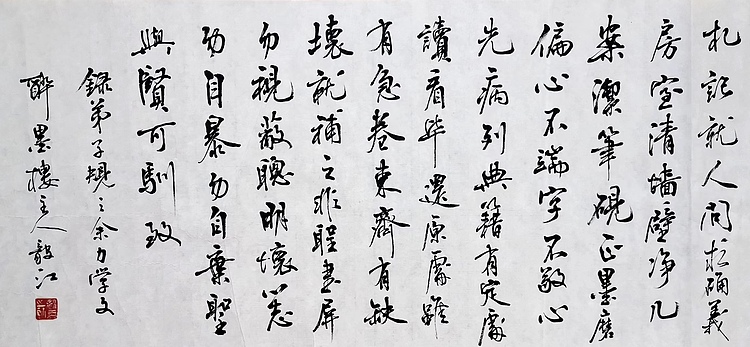 札記就人問求确義
房室清墙壁净几
案潔筆硯正墨磨
偏心不端字不敬心
先病列典籍有定處
讀看毕還原處雖
有急卷束齊有缺
壞就補之非聖書屏
勿視蔽聰明壞心志
勿自暴勿自棄聖
與賢可馴致
錄弟子規之余力学文
醉墨樓主人毅江